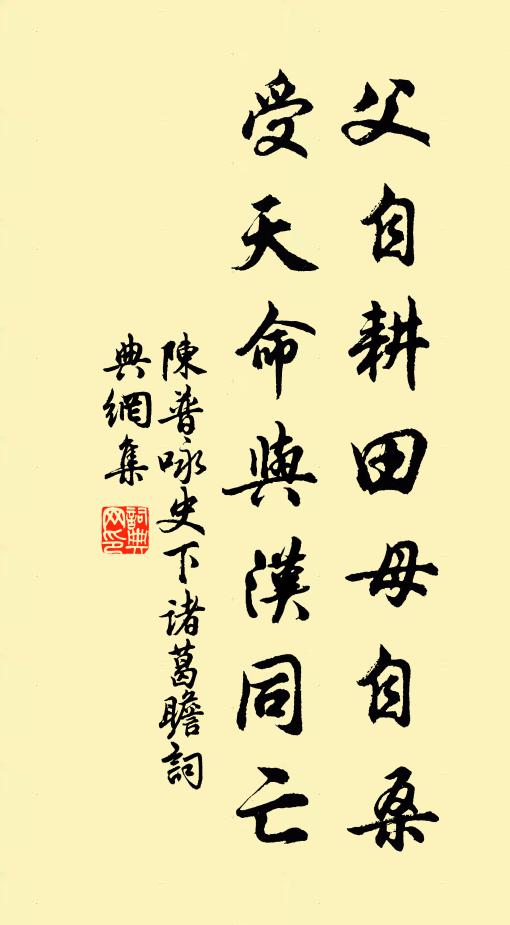 父自耕田母自桑
受天命與漢同亡
陳普咏史下諸葛瞻詞
典網集
詞典
网印